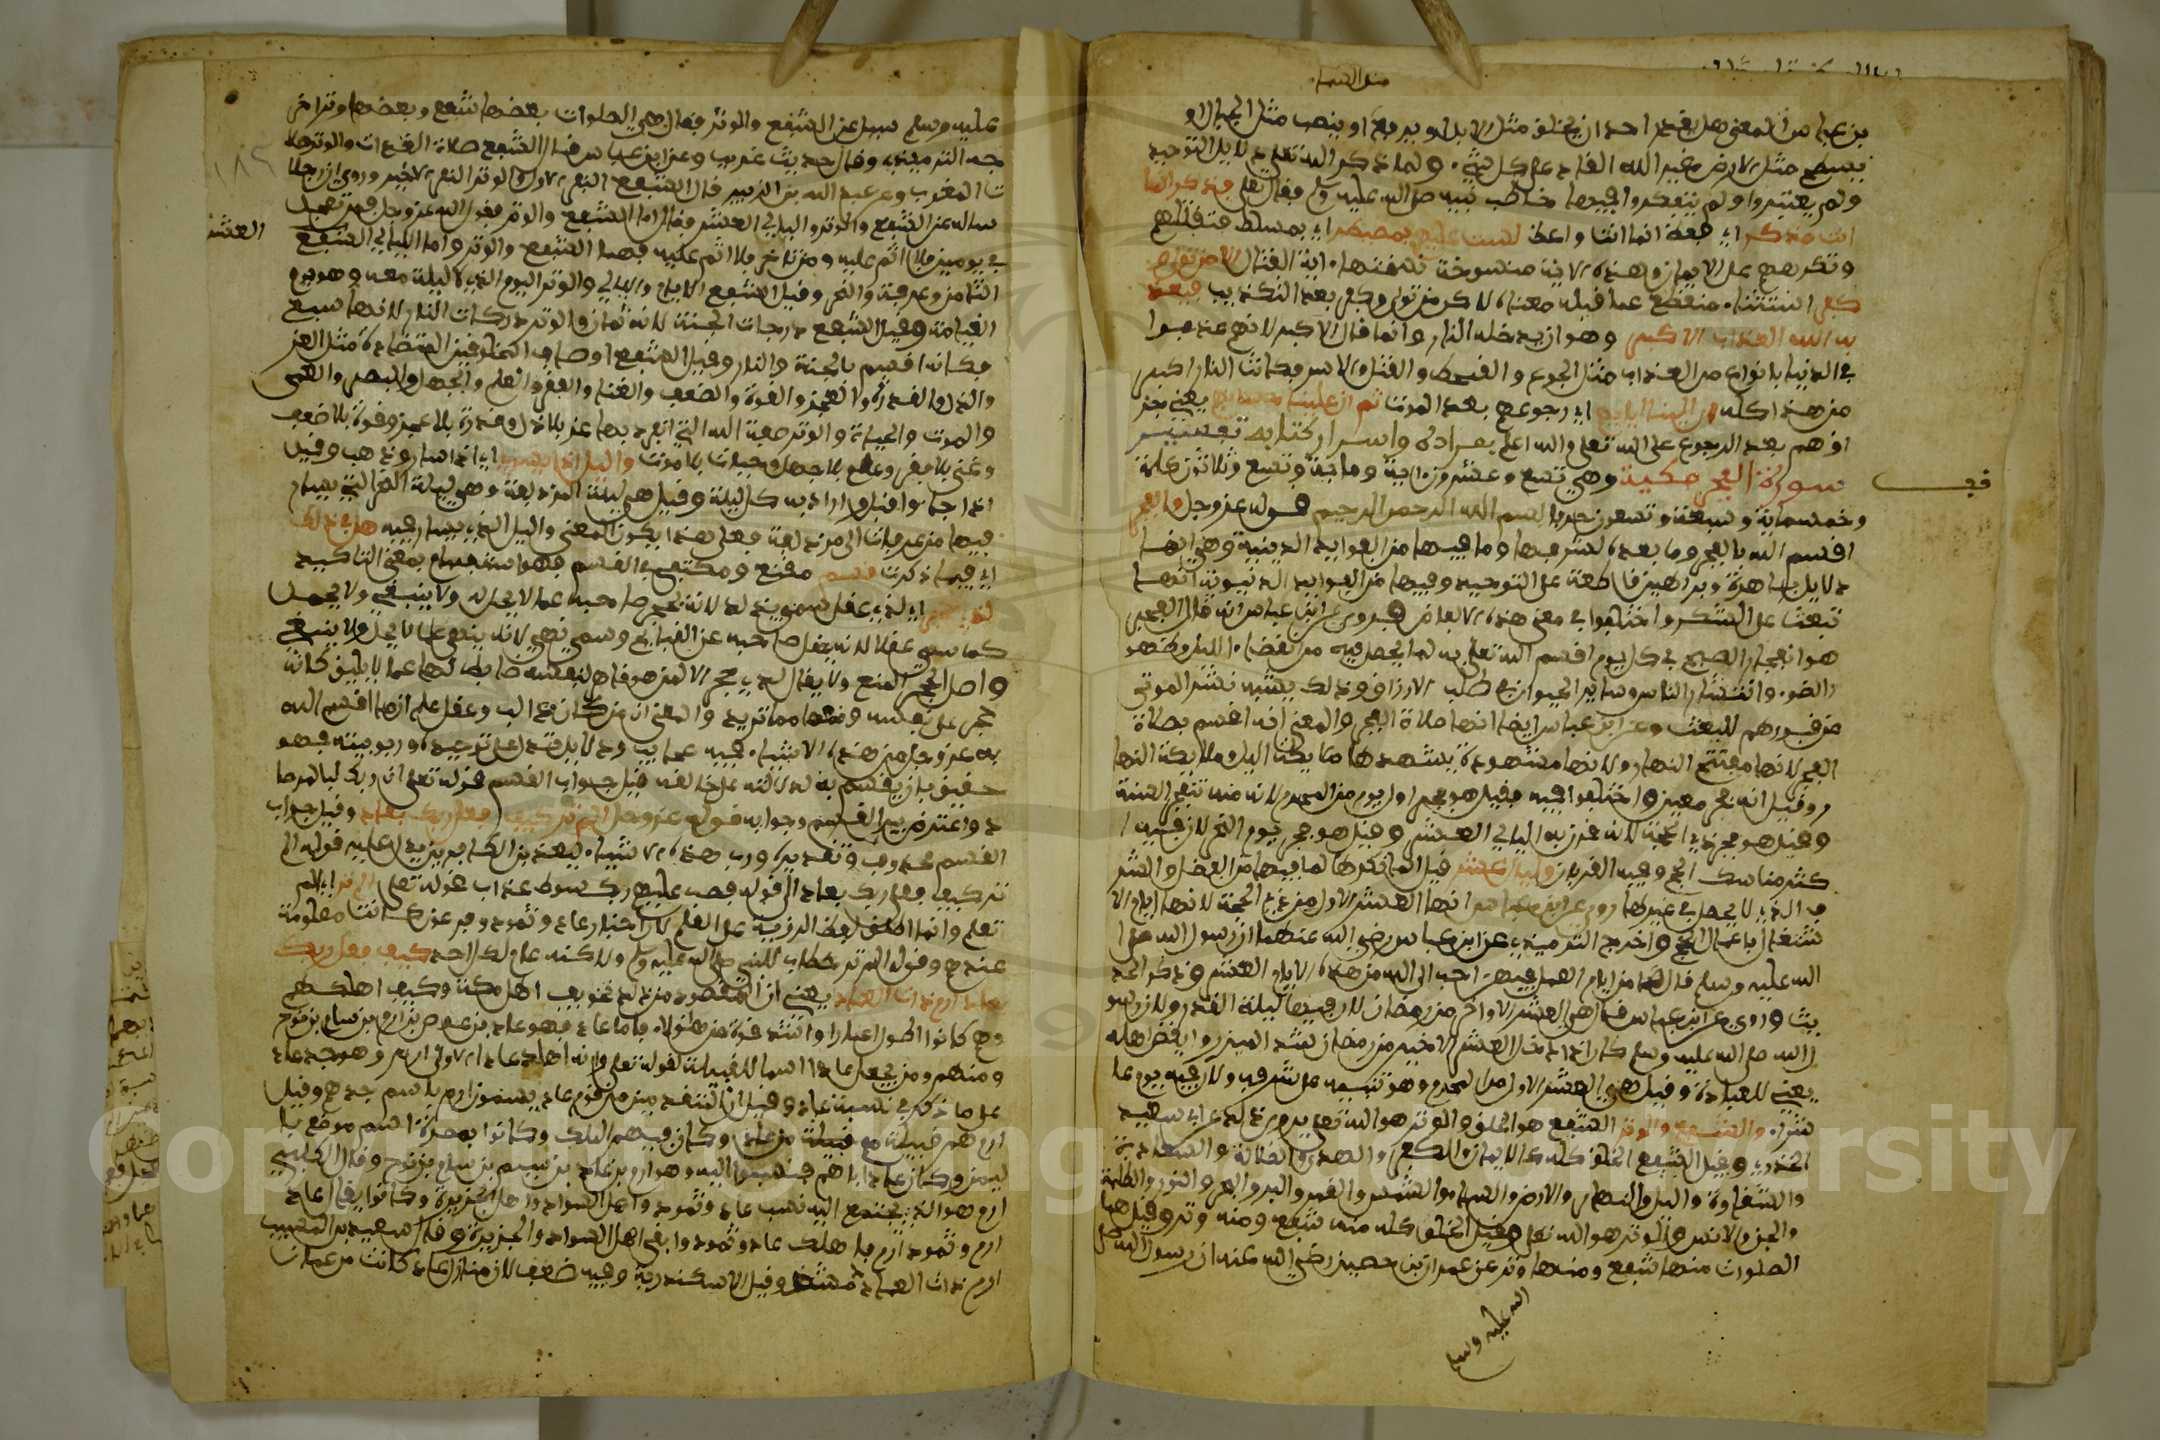 مثل السماء
بن عباس المعنى هل يقدر احد ان يخلق مثل الابل او يرفع او ينصب مثل الجبال او
يسطح مثل الارض غير الله القادر على كل شيء ولما ذكر الله تعالى دلايل التوحيد
ولم يعتبروا ولم يتفكروا فيها خاطب نبيه صلى الله عليه وسلم فقال تعالى فذكر انما
انت مذكر اي فعظ انما انت واعظ لست عليهم بمصيطر اي بمسلط فتقتلهم
وتكرههم على الايمان وهذه الاية منسوخة نسختها اية القتال الا من تولى و
كفر استثناء منقطع عما قبله معناه لاكن من تولى وكفر بعد التذكير فيعذ
به الله العذاب الاكبر وهو ان يدخله النار وانما قال الاكبر لانهم عذبوا
في الدنيا بانواع من العذاب مثل الجوع والقحط والقتل والاسر فكانت النار اكبر
من هذا كله ان الينا ايابهم اي رجوعهم بعد الموت ثم ان علينا حسابهم يعني جز
اوهم بعد الرجوع الى الله تعالى والله اعلم بمراده واسرار كتابه تفسير
سورة الفجر مكية وهي تسع وعشرون اية وماية وتسع وثلاثون كلمة
فجر
وخمسماية وسبعة وتسعون حرفا بسم الله الرحمن الرحيم قوله عز وجل والفجر
اقسم الله بالفجر وما بعده لشرفها وما فيها من الفوايد الدينية وهي انها
دلايل باهرة وبراهين قاطعة على التوحيد وفيها من الفوايد الدنيوية انها
تبعث على الشكر واختلفوا في معنى هذه الالفاظ فروي عن ابن عباس انه قال الفجر
هو انفجار الصبح في كل يوم اقسم الله تعالى به لما يحصل فيه من انقضاء الليل وظهو
ر الضوء وانتشار الناس وساير الحيوان في طلب الارزاق وذلك يشبه نشر الموتى
من قبورهم للبعث وعن ابن عباس ايضا انها صلاة الفجر والمعنى انه اقسم بصلاة
الفجر لانها مفتتح النهار ولانها مشهودة يشهدها ملايكة الليل وملايكة النها
ر وقيل انه فجر معين واختلفوا فيه فقيل هو فجر اول يوم من المحرم لانه منه تنفجر السنة
وقيل هو فجر ذي الحجة لانه قرن به الليالي العشر وقيل هو فجر يوم النحر لان فيه ا
كثر مناسك الحج وفيه القربان وليال عشر قيل انما نكرها لما فيها من الفضل والشر
ف الذي لا يحصل في غيرها روي عن ابن عباس انها العشر الاول من ذي الحجة لانها ايام الا
شتغال باعمال الحج واخرج الترمذي عن ابن عباس رضي الله عنهما ان رسول الله صلى
الله عليه وسلم قال ما من ايام العمل فيهن احب الى الله من هذه الايام العشر وذكر الحد
يث وروي عن ابن عباس قال هي العشر الاواخر من رمضان لان فيها ليلة القدر ولان رسو
ل الله صلى الله عليه وسلم كان اذا دخل العشر الاخير من رمضان شد الميزر وايقظ اهله
يعني للعبادة وقيل هي العشر الاول من المحرم وهو تنبيه على شرفه ولان فيه يوم عا
شورا والشفع والوتر الشفع هو الخلق والوتر هو الله تعالى يروى ذلك عن ابي سعيد
الخدري وقيل الشفع الخلق كله كالايمان والكفر والهدى والضلالة والسعادة
والشقاوة والليل والنهار والارض والسماء والشمس والقمر والبر والبحر والنور والظلمة
والجن والانس والوتر هو الله تعالى وقيل الخلق كله منه شفع ومنه وتر وقيل هما
الصلوات منها شفع ومنها وتر عن عمران بن حصين رضي الله عنه ان رسول الله صلى
الله عليه وسلم
عليه وسلم سيل عن الشفع والوتر فقال هي الصلوات بعضها شفع وبعضها وتر اخر
جه الترمذي وقال حديث غريب وعن ابن عباس قال الشفع صلاة الغداة والوتر صلا
ة المغرب وعن عبد الله بن الزبير قال الشفع النفر الاول والوتر النفر الاخير وروي ان رجلا
ساله عن الشفع والوتر والليالي العشر فقال اما الشفع والوتر فقول الله عز وجل فمن تعجل
العشر
في يومين فلا اثم عليه ومن تاخر فلا اثم عليه فهما الشفع والوتر واما الليالي
الثامن وعرفة والنحر وقيل الشفع الايام والليالي والوتر اليوم الذي لا ليلة معه وهو يوم
القيامة وقيل الشفع درجات الجنة لانها ثمان والوتر دركات النار لانها سبع
فكانه اقسم بالجنة والنار وقيل الشفع اوصاف المخلوقين المتضادة مثل العز
والذل والقدرة والعجز والقوة والضعف والغنا والفقر والعلم والجهل والبصر والعمى
والموت والحياة والوتر صفة الله التي انفرد بها عز بلا ذل وقدرة بلا عجز وقوة بلا ضعف
وغنى بلا فقر وعلم بلا جهل وحيات بلا موت والليل اذا يسر اي اذا سار وذهب وقيل
اذا جاء واقبل واراد به كل ليلة وقيل هي ليلة المزدلفة وهي ليلة النحر التي يسار
فيها من عرفات الى مزدلفة فعلى هذا يكون المعنى والليل الذي يسار فيه هل في ذلك
اي فيما ذكرت قسم مقنع ومكتفى في القسم فهو استفهام بمعنى التاكيد
لذي حجر اي لذي عقل سمي بذلك لانه يحجر صاحبه عما لا يحل له ولا ينبغي ولا يجمل
كما سمي عقلا لانه يعقل صاحبه عن القبايح وسمي نهى لانه ينهى عما لا يحل ولا ينبغي
واصل الحجر المنع ولا يقال ذو حجر الا لمن هو قاهر لنفسه ضابط لها عما لا يليق كانه
حجر على نفسه ومنعها مما تريد والمعنى ان من كان ذا لب وعقل علم ان ما اقسم الله
به عز وجل من هذه الاشياء فيه عجايب ودلايل تدل على توحيده وربوبيته فهو
حقيق بان يقسم به لدلالته على خالقه قيل جواب القسم قوله تعالى ان ربك لبالمرصا
د واعترض بين القسم وجوابه قوله عز وجل الم تر كيف فعل ربك بعاد وقيل جواب
القسم محذوف وتقديره ورب هذه الاشياء ليعذبن الكافرين يدل عليه قوله الم
تر كيف فعل ربك بعاد الى قوله فصب عليهم ربك سوط عذاب قوله تعالى الم تر اي الم
تعلم وانما اطلق لفظ الروية على العلم لان اخبار عاد وثمود وفرعون كانت معلومة
عندهم وقوله الم تر خطاب للنبي صلى الله عليه وسلم ولاكنه عام لكل احد كيف فعل ربك
بعاد ارم ذات العماد يعني ان المقصود من ذلك تخويف اهل مكة وكيف اهلكهم
وهم كانوا اطول اعمارا واشد قوة من هاولاء فاما عاد فهو عاد بن عوص بن ارم بن سام بن نوح
ومنهم من يجعل عادا اسما للقبيلة لقوله تعالى وانه اهلك عادا الاولى ارم وهو جد عاد
على ما ذكر في نسبة عاد وقيل ان المتقدمين من قوم عاد يسمون ارم باسم جدهم وقيل
ارم هم قبيلة من عاد وكان فيهم الملك وكانوا بمهرة اسم موضع با
ليمن وكان عاد اباهم فنسبوا اليه وهو ارم بن عاد بن شيم بن سام بن نوح وقال الكلبي
ارم هو الذي يجتمع اليه نسب عاد وثمود واهل السواد واهل الجزيرة وكانوا يقال عاد
ارم وثمود ارم فاهلك عاد وثمود وابقى اهل السواد والجزيرة وقال سعيد بن المسيب
ارم ذات العماد دمشق وقيل الاسكندرية وفيه ضعف لان منازل عاد كانت من عمان
Copyright © King Saud University